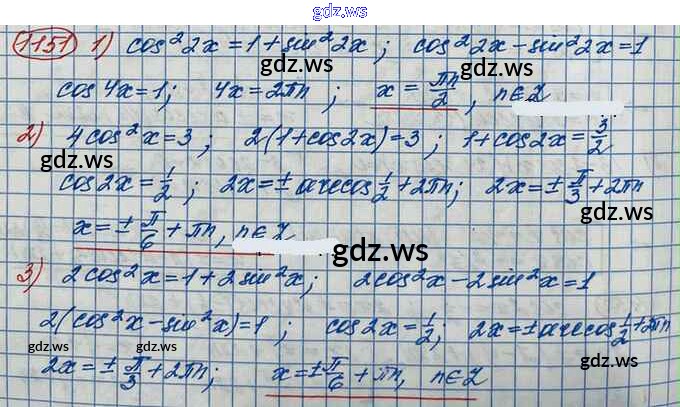 gdz.ws
1151 1) cos² 2x = 1 + sin² 2x ; cos² 2x − sin² 2x = 1
cos 4x = 1 ; 4x = 2πn ; x = πn/2 , n ∈ Z
gdz.ws gdz.ws
2) 4 cos² x = 3 ; 2(1 + cos 2x) = 3 ; 1 + cos 2x = 3/2
gdz.ws gdz.ws
cos 2x = 1/2 ; 2x = ± arccos 1/2 + 2πn ; 2x = ± π/3 + 2πn
x = ± π/6 + πn, n ∈ Z
gdz.ws
3) 2 cos² x = 1 + 2 sin² x ; 2 cos² x − 2 sin² x = 1
2(cos² x − sin² x) = 1 ; cos 2x = 1/2 ; 2x = ± arccos 1/2 + 2πn
gdz.ws gdz.ws gdz.ws
2x = ± π/3 + 2πn ; x = ± π/6 + πn, n ∈ Z
gdz.ws